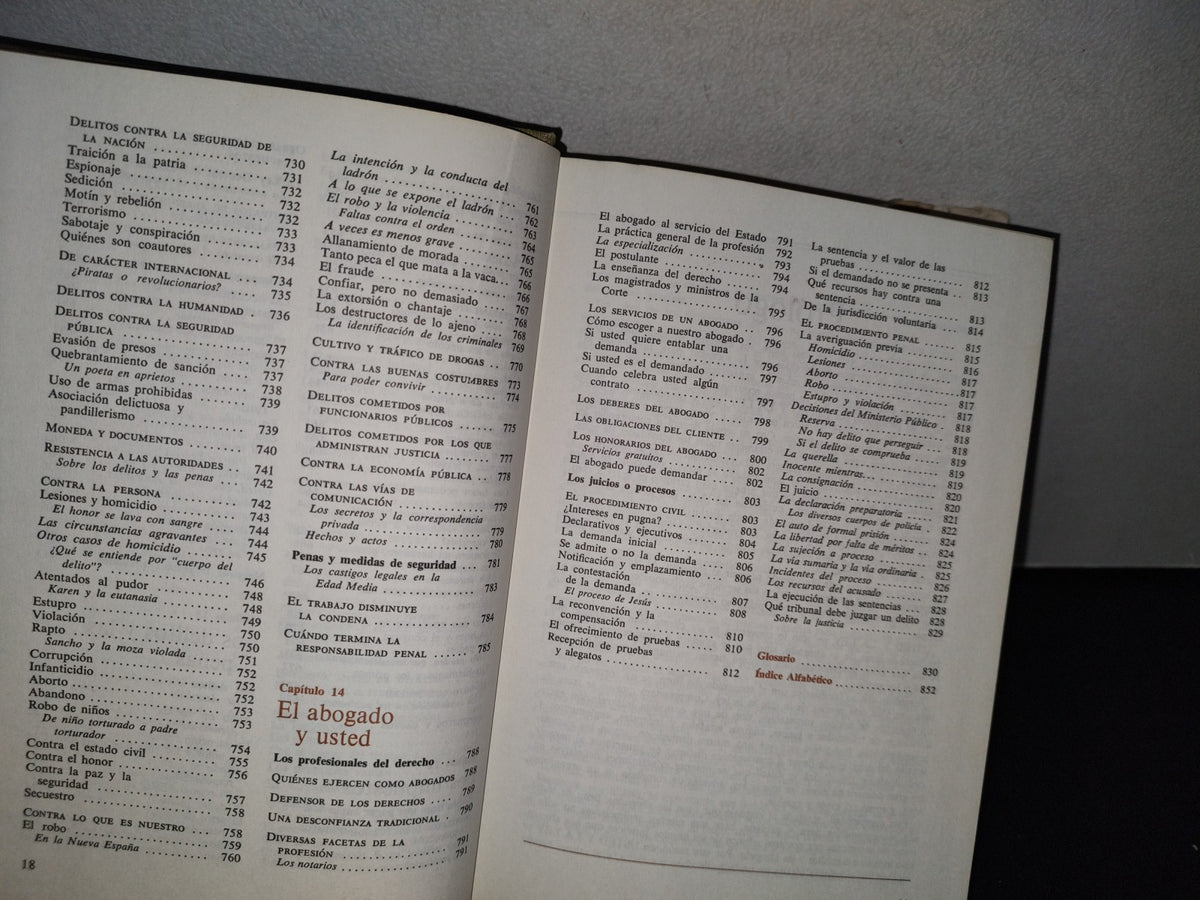 DELITOS CONTRA LA SEGURIDAD DE
LA NACIÓN ................ 730
Traición a la patria ........... 731
Espionaje .................... 732
Sedición ..................... 732
Motín y rebelión .............. 732
Terrorismo ................... 733
Sabotaje y conspiración ........ 733
Quiénes son coautores ......... 734
DE CARÁCTER INTERNACIONAL .... 734
¿Piratas o revolucionarios? .... 735
DELITOS CONTRA LA HUMANIDAD . 736
DELITOS CONTRA LA SEGURIDAD
PÚBLICA .................. 737
Evasión de presos ............. 737
Quebrantamiento de sanción .... 737
Un poeta en aprietos ......... 738
Uso de armas prohibidas ....... 739
Asociación delictuosa y
pandillerismo ............... 739
MONEDA Y DOCUMENTOS ........ 740
RESISTENCIA A LAS AUTORIDADES .. 741
Sobre los delitos y las penas ... 742
CONTRA LA PERSONA ........... 742
Lesiones y homicidio .......... 743
El honor se lava con sangre .... 744
Las circunstancias agravantes .... 744
Otros casos de homicidio ....... 745
¿Qué se entiende por "cuerpo del
delito"? ................... 746
Atentados al pudor ............ 748
Karen y la eutanasia ......... 748
Estupro ..................... 749
Violación .................... 750
Rapto ....................... 750
Sancho y la moza violada ..... 751
Corrupción .................. 752
Infanticidio .................. 752
Aborto ...................... 752
Abandono ................... 753
Robo de niños ................ 753
De niño torturado a padre
torturador ................. 754
Contra el estado civil .......... 755
Contra el honor .............. 756
Contra la paz y la
seguridad ................. 757
Secuestro .................... 758
CONTRA LO QUE ES NUESTRO ... 758
El robo ..................... 759
En la Nueva España ......... 760
18
La intención y la conducta del
ladrón .................... 761
A lo que se expone el ladrón ... 762
El robo y la violencia ......... 763
Faltas contra el orden ........ 764
A veces es menos grave ........ 765
Allanamiento de morada ....... 765
Tanto peca el que mata a la vaca... 766
El fraude .................... 766
Confiar, pero no demasiado ..... 767
La extorsión o chantaje ........ 768
Los destructores de lo ajeno .... 768
La identificación de los criminales 769
CULTIVO Y TRÁFICO DE DROGAS .. 770
CONTRA LAS BUENAS COSTUMBRES 773
Para poder convivir .......... 774
DELITOS COMETIDOS POR
FUNCIONARIOS PÚBLICOS ...... 775
DELITOS COMETIDOS POR LOS QUE
ADMINISTRAN JUSTICIA ....... 777
CONTRA LA ECONOMÍA PÚBLICA . 778
CONTRA LAS VÍAS DE
COMUNICACIÓN ............. 779
Los secretos y la correspondencia
privada ................... 779
Hechos y actos .............. 780
Penas y medidas de seguridad ... 781
Los castigos legales en la
Edad Media ................ 783
EL TRABAJO DISMINUYE
LA CONDENA ............... 784
CUÁNDO TERMINA LA
RESPONSABILIDAD PENAL ...... 785
Capítulo 14
El abogado
y usted
Los profesionales del derecho ... 788
QUIÉNES EJERCEN COMO ABOGADOS 788
DEFENSOR DE LOS DERECHOS .... 789
UNA DESCONFIANZA TRADICIONAL . 790
DIVERSAS FACETAS DE LA
PROFESIÓN ................. 791
Los notarios ................ 791
El abogado al servicio del Estado 791
La práctica general de la profesión 792
La especialización ............ 793
El postulante ................. 794
La enseñanza del derecho ....... 794
Los magistrados y ministros de la
Corte ..................... 795
LOS SERVICIOS DE UN ABOGADO .. 796
Cómo escoger a nuestro abogado . 796
Si usted quiere entablar una
demanda ................... 796
Si usted es el demandado ....... 797
Cuando celebra usted algún
contrato ................... 797
LOS DEBERES DEL ABOGADO ..... 798
LAS OBLIGACIONES DEL CLIENTE .. 799
LOS HONORARIOS DEL ABOGADO ... 800
Servicios gratuitos ........... 802
El abogado puede demandar .... 802
Los juicios o procesos .......... 803
EL PROCEDIMIENTO CIVIL ....... 803
¿Intereses en pugna? .......... 803
Declarativos y ejecutivos ....... 804
La demanda inicial ............ 805
Se admite o no la demanda ..... 806
Notificación y emplazamiento ... 806
La contestación
de la demanda .............. 807
El proceso de Jesús .......... 808
La reconvención y la
compensación ............... 810
El ofrecimiento de pruebas ..... 810
Recepción de pruebas
y alegatos .................. 812
La sentencia y el valor de las
pruebas .................... 812
Si el demandado no se presenta .. 813
Qué recursos hay contra una
sentencia ................... 813
De la jurisdicción voluntaria .... 814
EL PROCEDIMIENTO PENAL ...... 815
La averiguación previa ......... 815
Homicidio .................. 816
Lesiones .................... 817
Aborto ..................... 817
Robo ....................... 817
Estupro y violación .......... 817
Decisiones del Ministerio Público . 818
Reserva .................... 818
No hay delito que perseguir ... 818
Si el delito se comprueba ..... 819
La querella .................. 819
Inocente mientras... ........... 819
La consignación .............. 820
El juicio ..................... 820
La declaración preparatoria .... 821
Los diversos cuerpos de policía . 822
El auto de formal prisión ....... 824
La libertad por falta de méritos .. 824
La sujeción a proceso .......... 825
La vía sumaria y la vía ordinaria . 825
Incidentes del proceso ......... 826
Los recursos del acusado ....... 827
La ejecución de las sentencias ... 828
Qué tribunal debe juzgar un delito 828
Sobre la justicia ............. 829
Glosario ..................... 830
Índice Alfabético .............. 852